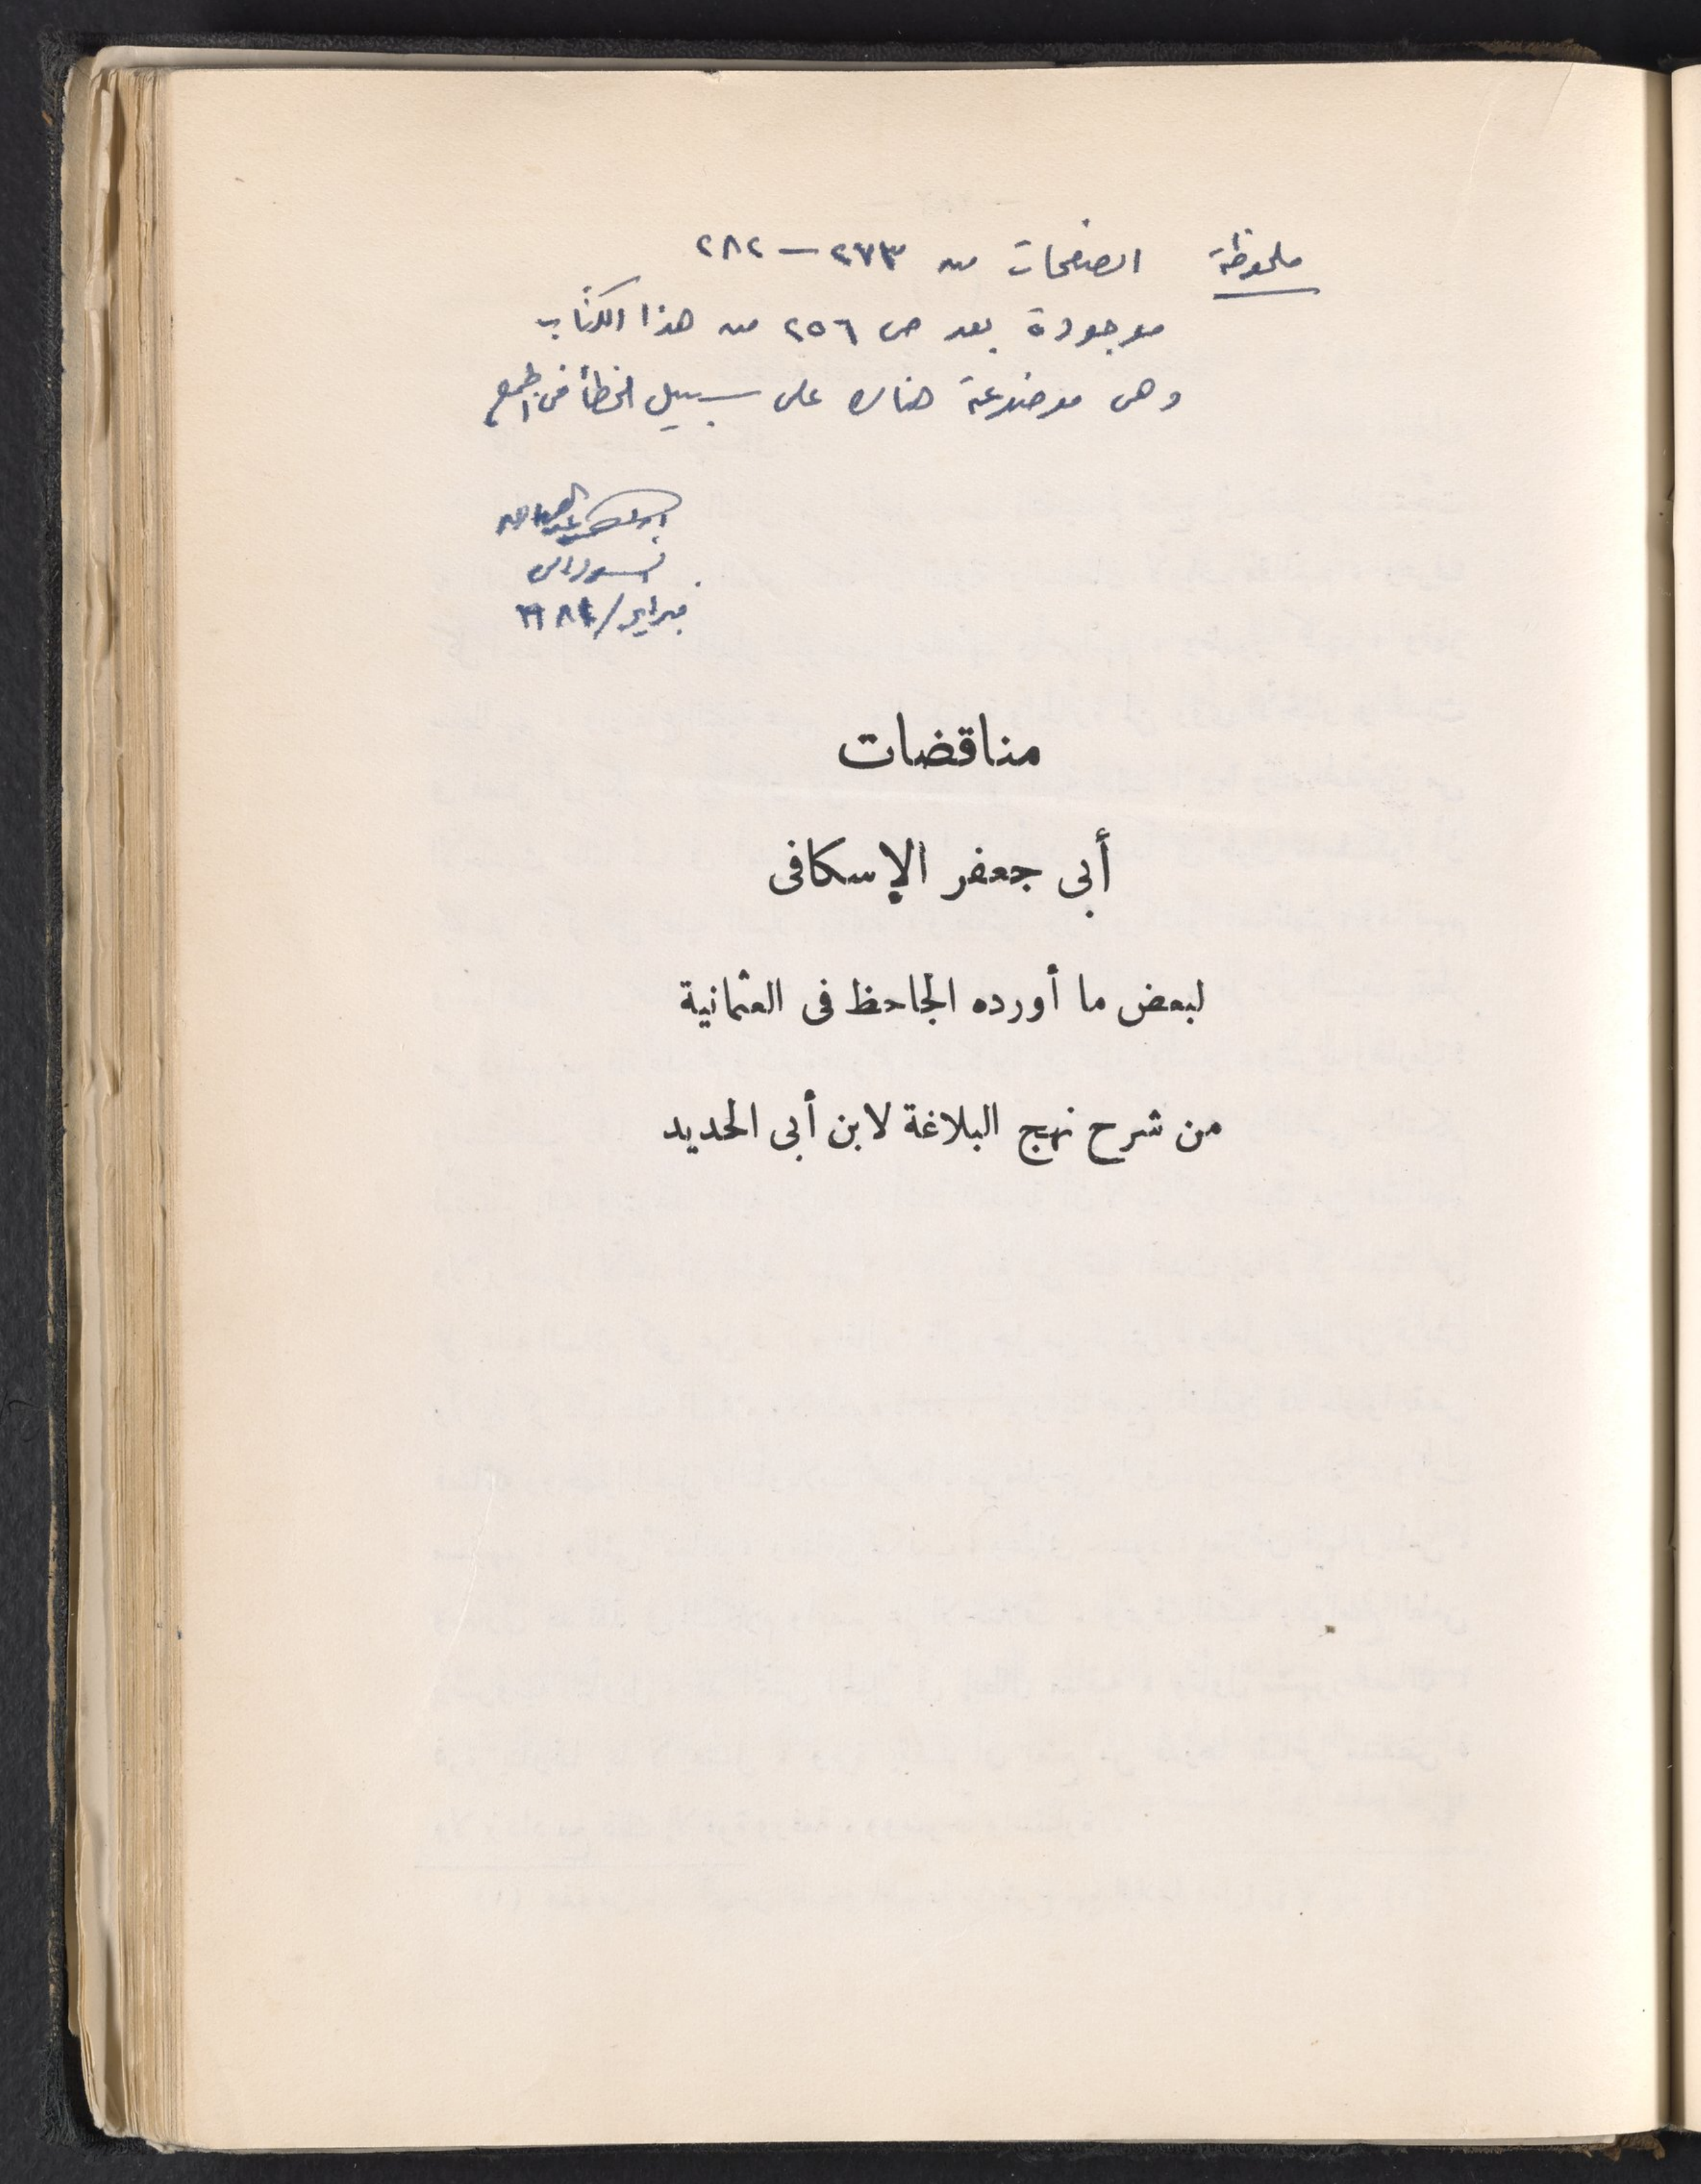 ملحوظة الصفحات من ٢٧٣ – ٢٨٢
موجودة بعد ص ٢٥٦ من هذا الكتاب
وهى موضوعة هناك على سبيل الخطأ فى
فبراير /
مناقضات
أبى جعفر الإسكافى
لبعض ما أورده الجاحظ فى العثمانية
من شرح نهج البلاغة لابن أبى الحديد